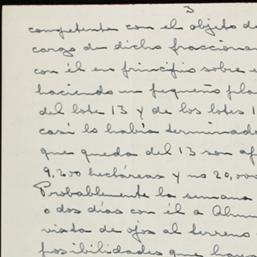 3
competente con el objeto de
cargo de dicho fracciona
con él en principio sobre e
haciendo un pequeño pla
del lote 13 y de los lotes 1
casi lo había terminado
que queda del 13 son ap
9,200 hectáreas y no 20,000
Probablemente la semana
o dos días con él a
vista de ojos al terreno
posibilidades que haya